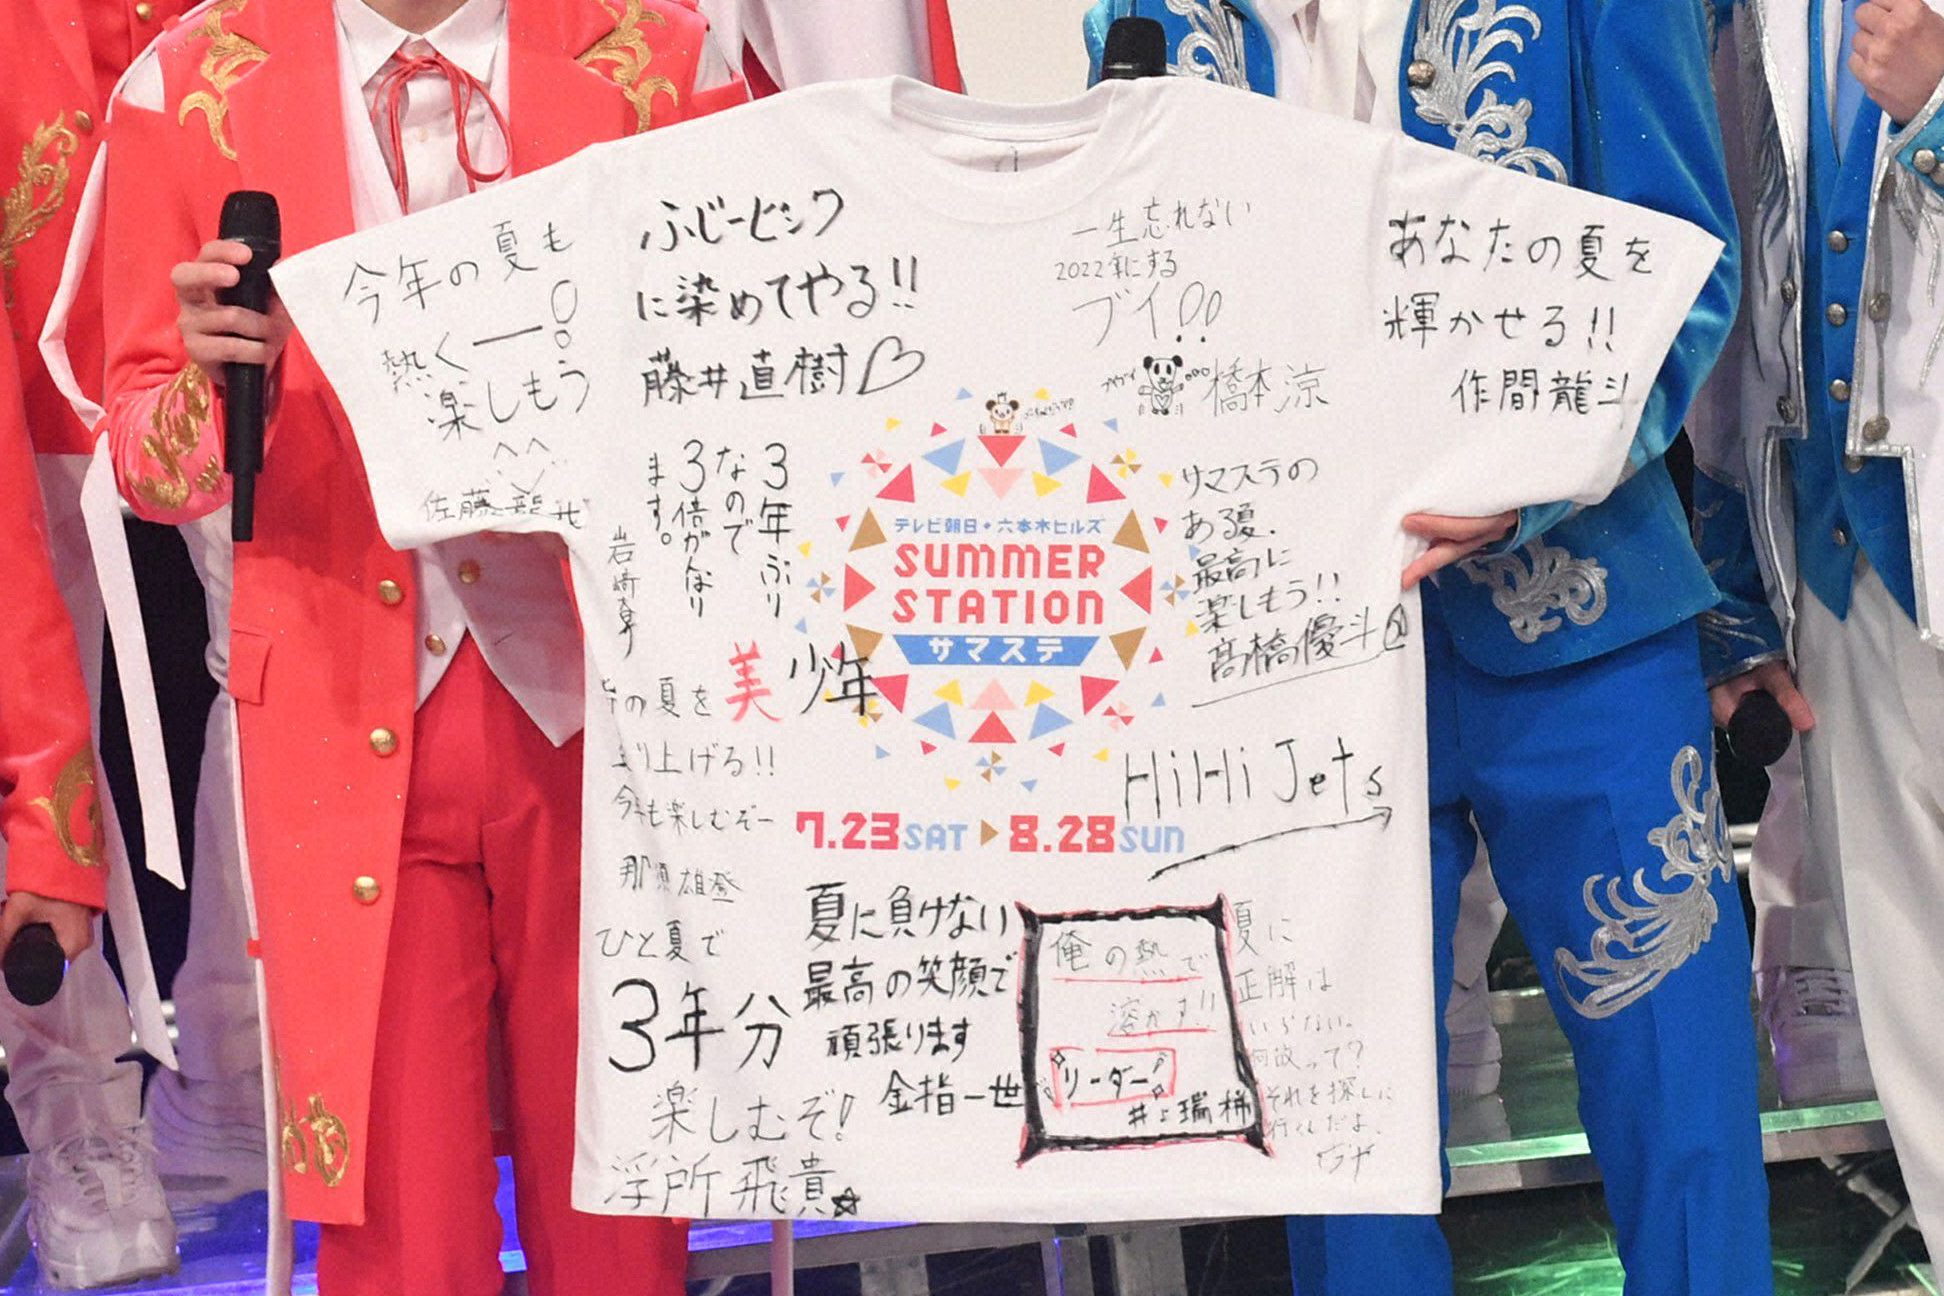 今年の夏も
熱くーー!!
楽しもう
佐藤龍我
ふじーピンク
に染めてやる!!
藤井直樹♡
一生忘れない
2022年にする
ブイ!!
橋本涼
あなたの夏を
輝かせる!!
作間龍斗
3年ぶり
なので
3倍がんばり
ます。
岩﨑
テレビ朝日・六本木ヒルズ
SUMMER
STATION
サマステ
サマステの
ある夏、
最高に
楽しもう!!
髙橋優斗
の夏を
美 少年
上げる!!
今年も楽しむぞー
那須雄登
HiHi Jets
7.23SAT▶8.28SUN
ひと夏で
3年分
楽しむぞ!
浮所飛貴☆
夏に負けない
最高の笑顔で
頑張ります
金指一世
俺の熱で
溶かす!!
リーダー
井上瑞稀
夏に
正解は
いらない。
何故って?
それを探しに
行くんだよ、